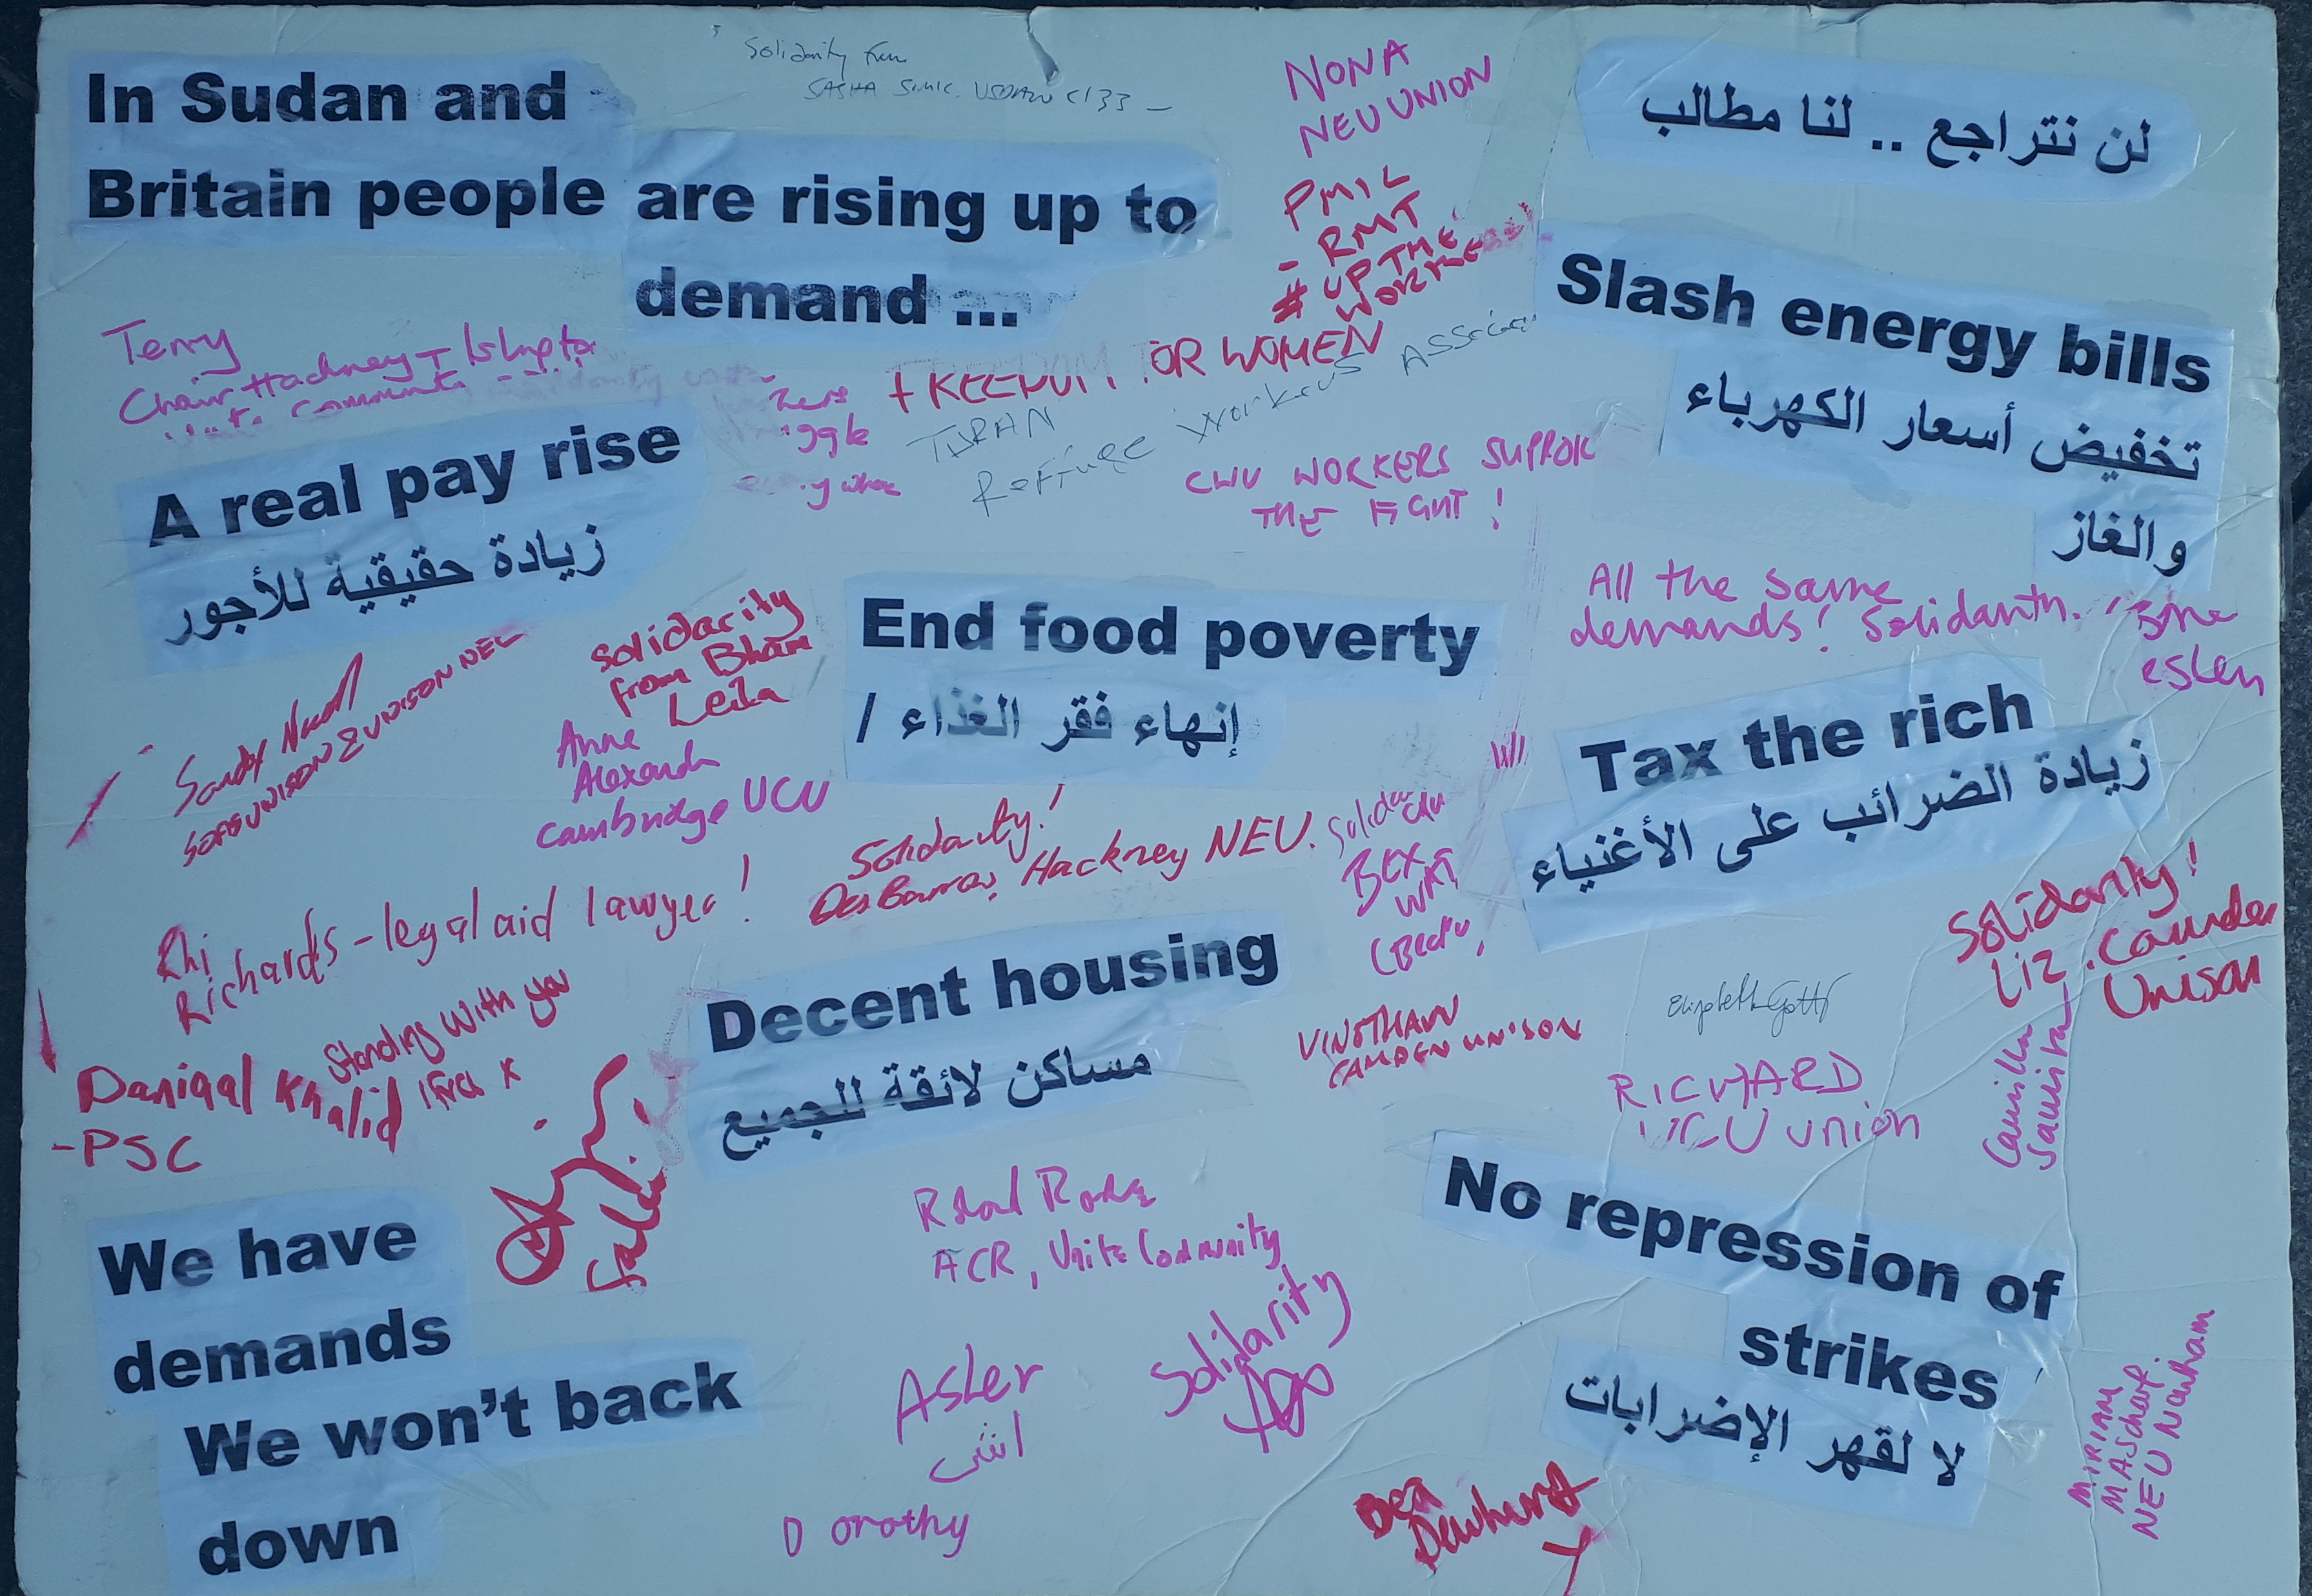 Solidarity from
SASHA SIMIC. USDAW C133
In Sudan and
Britain people are rising up to
demand ...
NONA
NEU UNION
RMT
# UP THE
لن نتراجع .. لنا مطالب
Slash energy bills
تخفيض أسعار الكهرباء
والغاز
Terry
Chair Hackney + Islington
FREEDOM FOR WOMEN
Reffuge Workers
CWU WORKERS SUPPOR
THE FIGHT !
A real pay rise
زيادة حقيقية للأجور
All the same
demands! Solidarity.
End food poverty
إنهاء فقر الغذاء /
solidarity
from Bham
Leila
Anne
Alexander
Cambridge UCU
Sandy
SOAS UNISON & UNISON NEC
Tax the rich
زيادة الضرائب على الأغنياء
Solidarity!
Des Barrow, Hackney NEU.
BEX
(Bectu,
Rhi
Richards - legal aid lawyer!
Solidarity!
Liz. Camden
Unison
Decent housing
مساكن لائقة للجميع
Standing with you
Daniqal Khalid
-PSC
CAMDEN UNISON
RICHARD
UCU union
Camilla
No repression of
strikes
لا لقهر الإضرابات
ACR, Unite Community
We have
demands
We won't back
down
Solidarity
Dorothy
Bea
Dewhurst
MIRIAM
NEU Newham